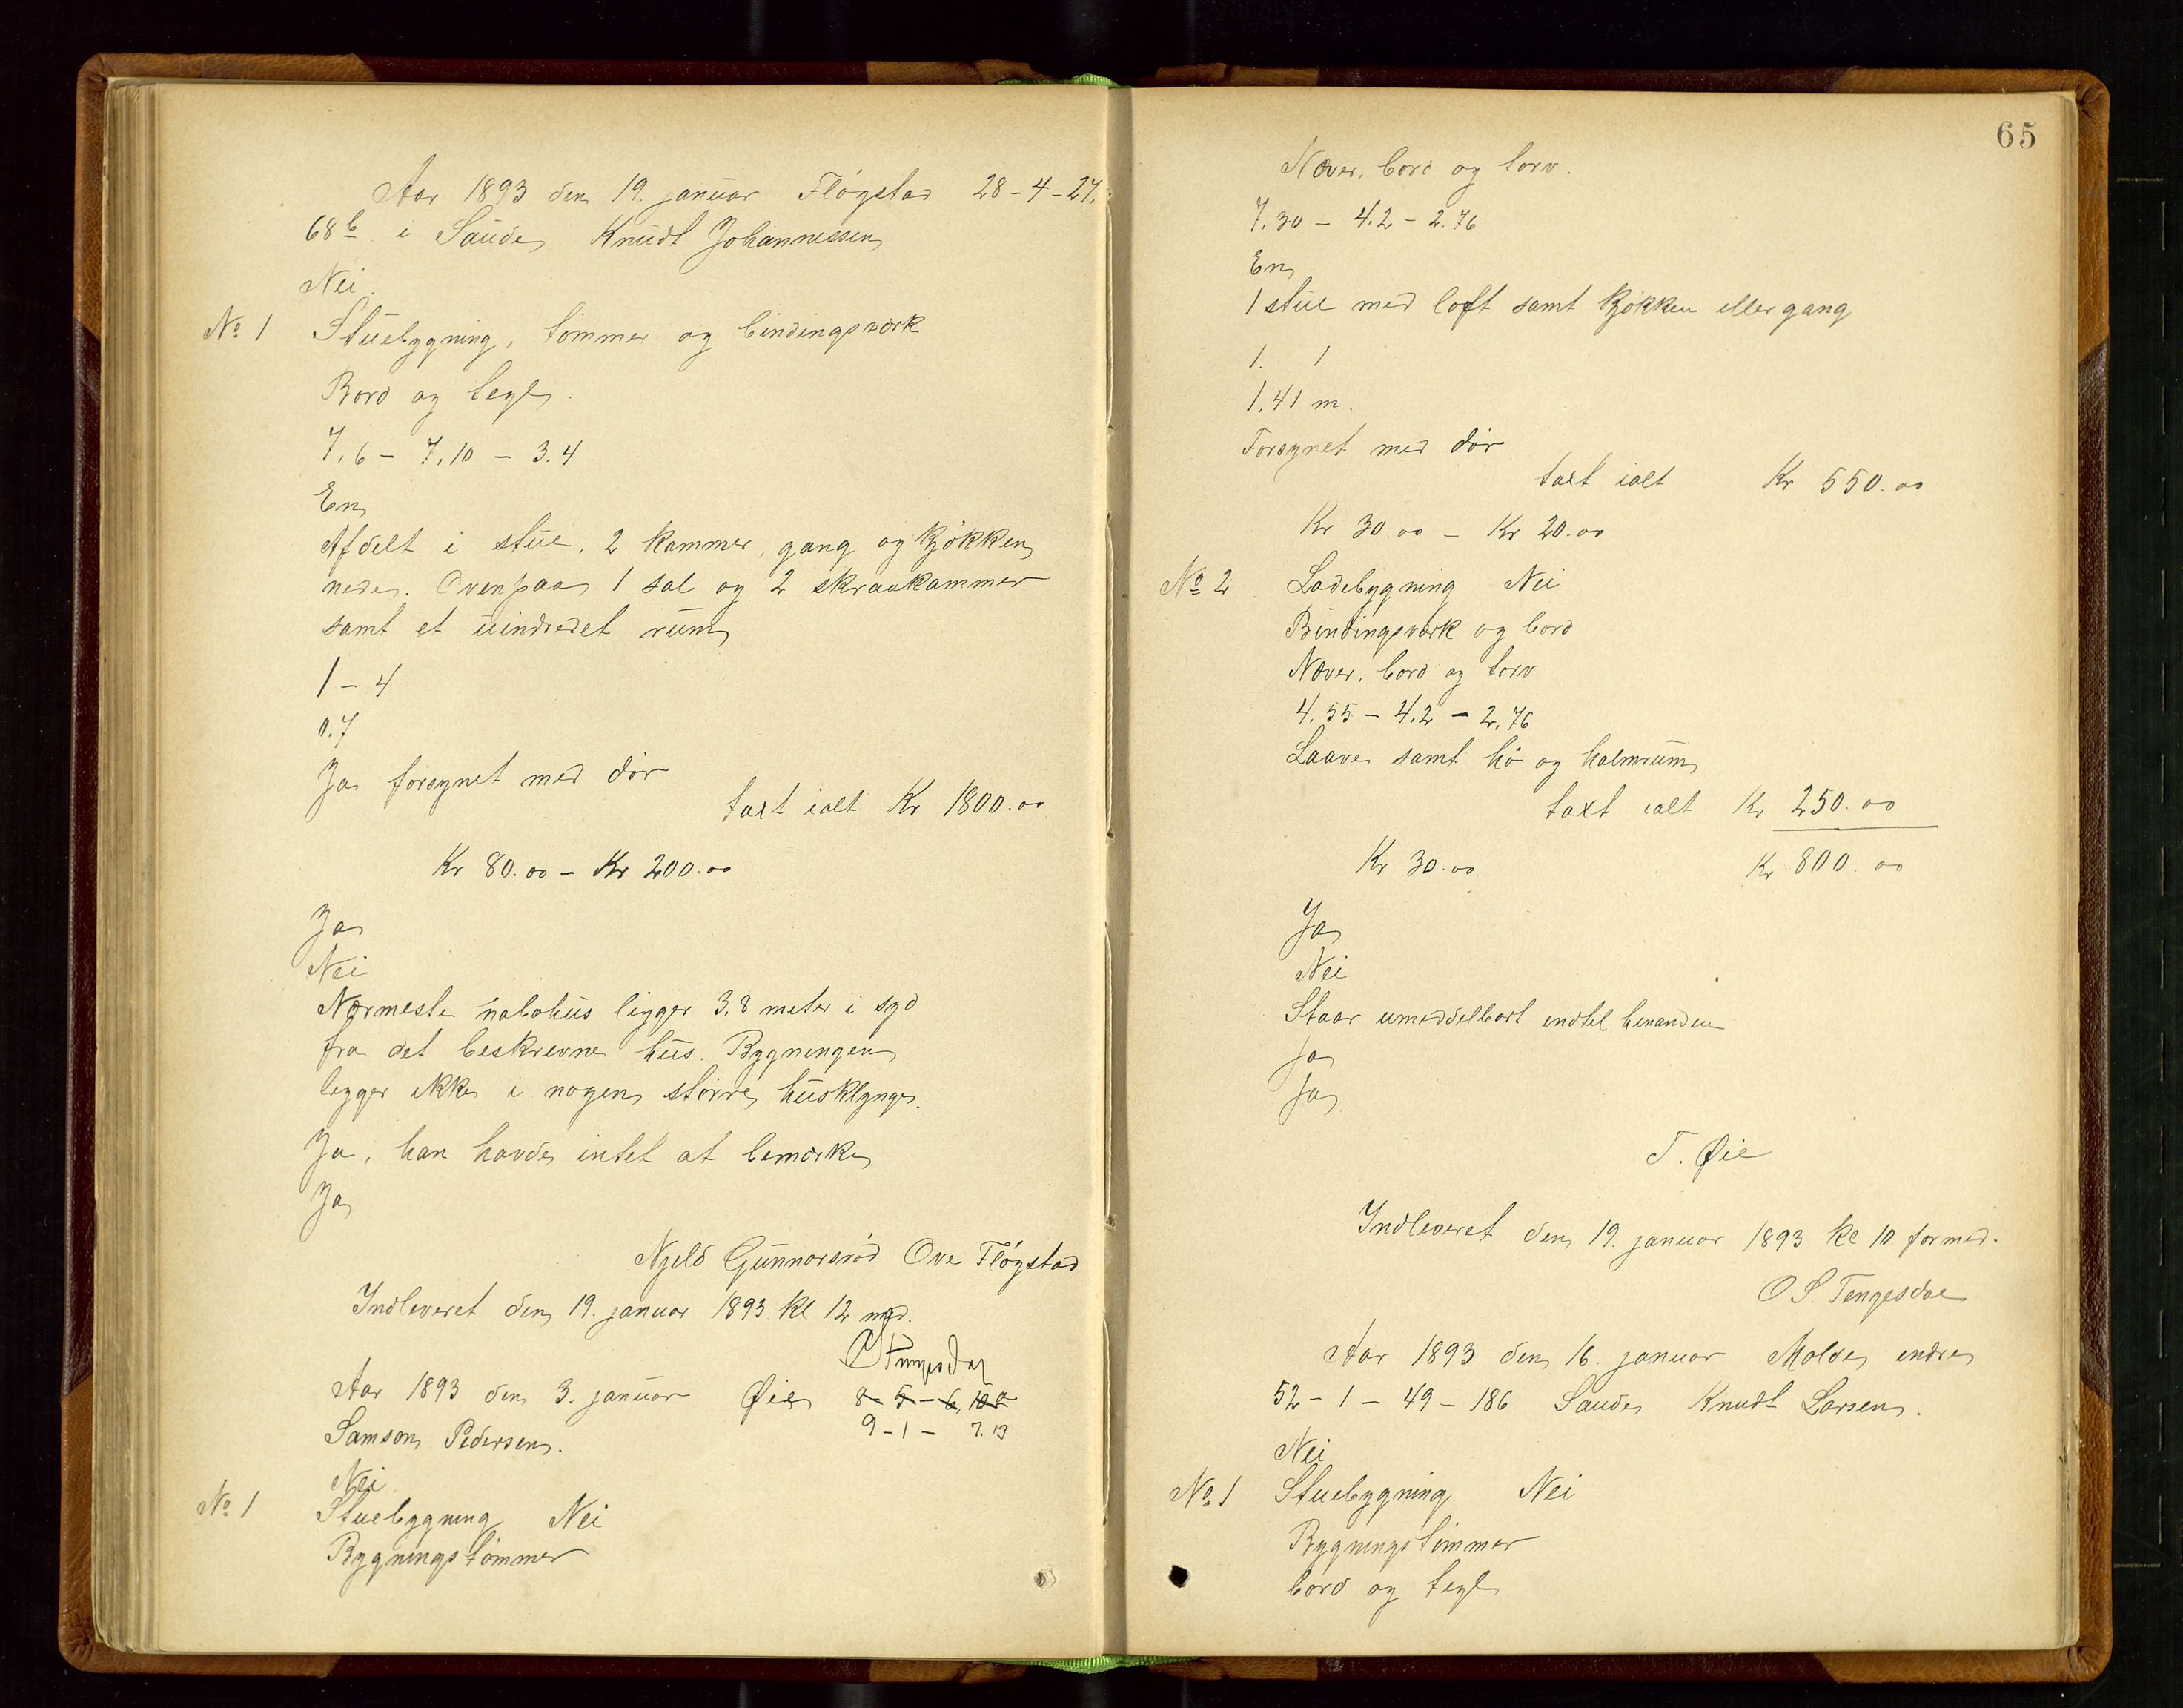 Aar 1893 den 19. januar Fløgstad 28-4-27.
68b i Saude Knudt Johannessen
Nei.
No 1 Stuebygning, tømmer og bindingsværk
Bord og tegl.
7.6 - 7.10 - 3.4
En
Afdelt i stue, 2 kammer, gang og kjøkken
nede. Ovenpaa 1 sal og 2 skraakammer
samt et uindredet rum
1 - 4
0.7
Ja forsynet med dør
taxt ialt Kr 1800.00
Kr 80.00 - Kr 200.00
Ja
Nei
Nærmeste nabohus ligger 3,8 meter i syd
fra det beskrevne hus. Bygningen
ligger ikke i nogen større husklynge.
Ja, han havde intet at bemærke
Ja
Njeld Gunnarsrød Ove Fløgstad
Indleveret den 19. januar 1893 kl 12 md.
Aar 1893 den 3. januar Øie 8-5-6,
Samson Pedersen. 9-1- 7.13
Nei
No 1 Stuebygning Nei
Bygningstømmer
65
Næver, bord og torv.
7.30 - 4.2 - 2.76
En
1 stue med loft samt kjøkken eller gang
1. 1
1.41 m.
Forsynet med dør
taxt ialt Kr 550.00
Kr 30.00 - Kr 20.00
No 2 Ladebygning Nei
Bindingsværk og bord
Næver, bord og torv
4.55 - 4.2 - 2.76
Laave samt hø og halmrum
taxt ialt Kr 250.00
Kr 30.00 Kr 800.00
Ja
Nei
Staar umiddelbart indtil hinanden
Ja
Ja
T. Øie
Indleveret den 19. januar 1893 kl 10 formd.
O S. Tengesdal
Aar 1893 den 16. januar Molde indre
52-1-49-186 Saude Knudt Larsen.
Nei
No. 1 Stuebygning Nei
Bygningstømmer
bord og tegl